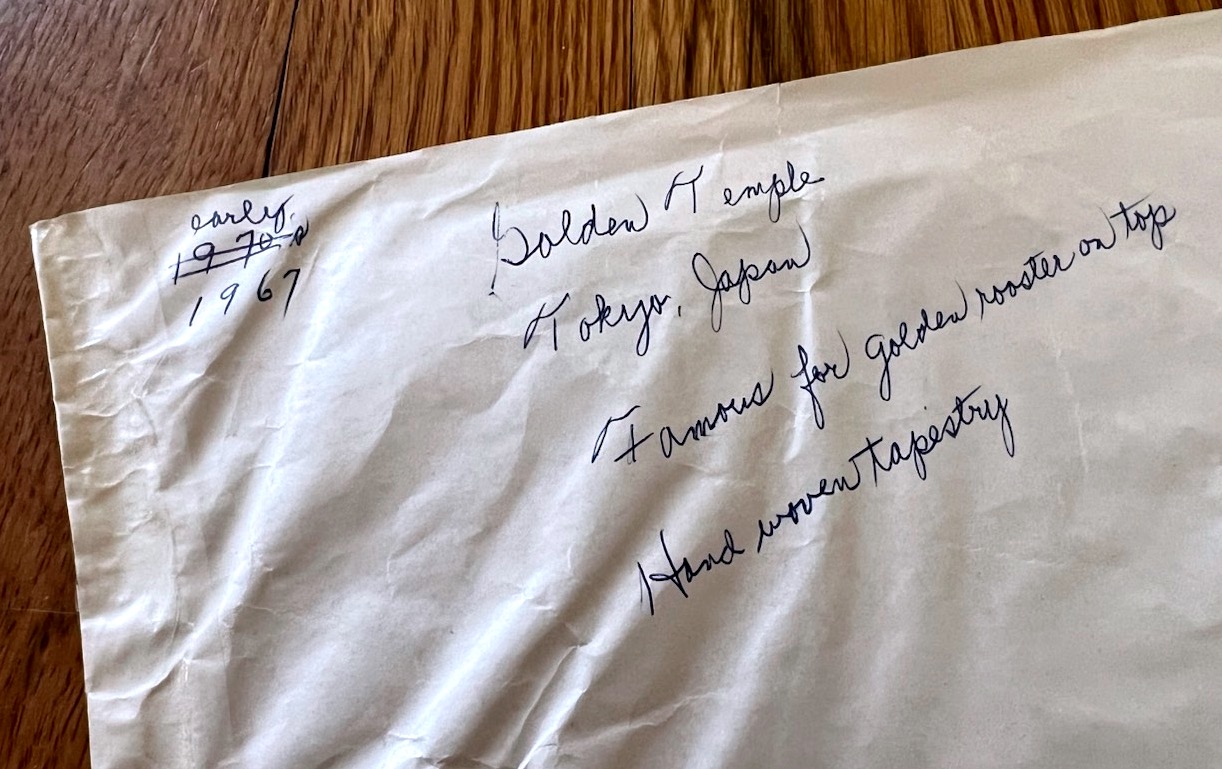 early
1970's
1967
Golden Temple
Tokyo, Japan
Famous for golden rooster on top
Hand woven tapestry